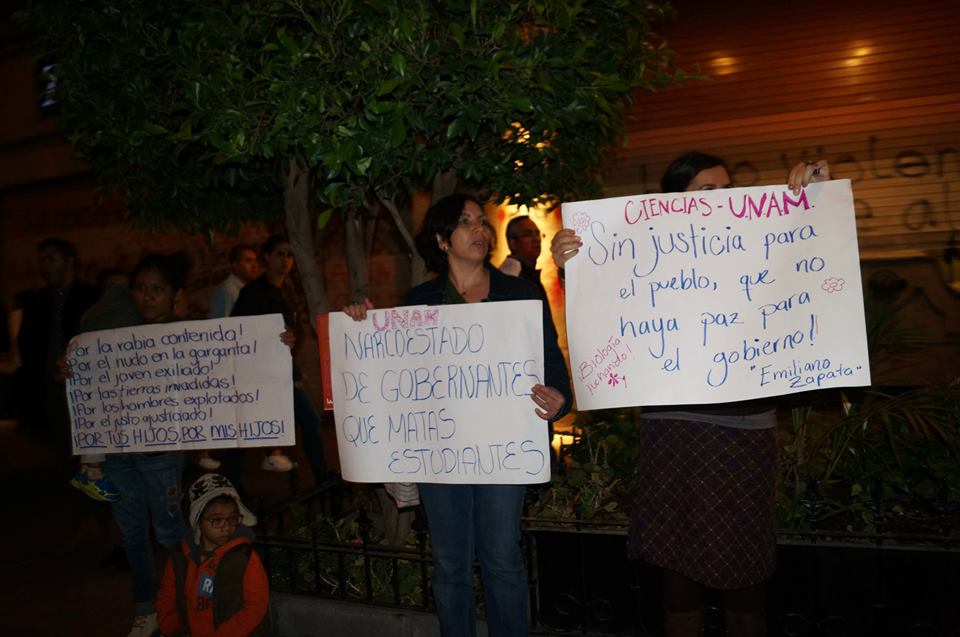 ¡Por la rabia contenida!
¡Por el nudo en la garganta!
¡Por el joven exiliado!
¡Por las tierras invadidas!
¡Por los hombres explotados!
¡Por el justo ajusticiado!
¡POR TUS HIJOS, POR MIS HIJOS!
UNAM
NARCOESTADO
DE GOBERNANTES
QUE MATAS
ESTUDIANTES
CIENCIAS - UNAM.
Sin justicia para
el pueblo, que no
haya paz para
el gobierno!
"Emiliano
Zapata"
¡Biología
luchando!